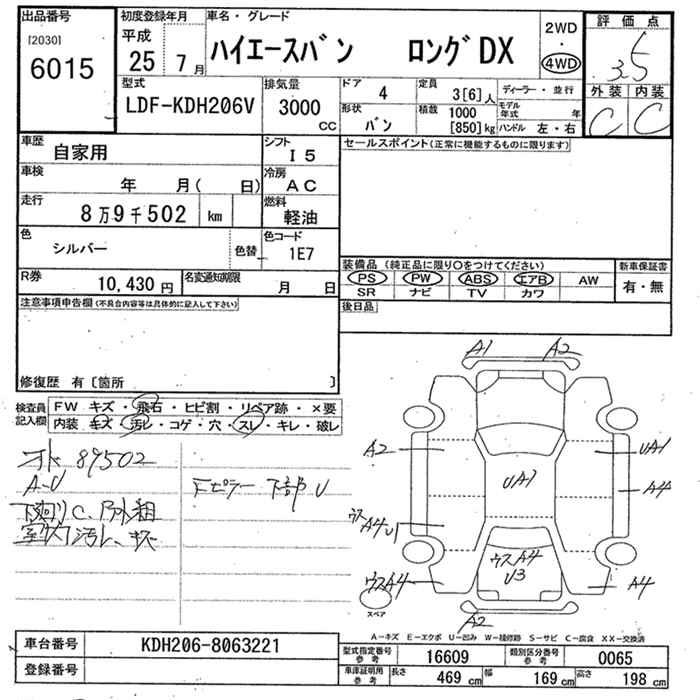 出品番号
[2030]
6015
初度登録年月
平成
25年 7月
車名・グレード
ハイエースバン ロングDX
2WD
・
4WD
評価点
3.5
外装 内装
C C
型式
LDF-KDH206V
排気量
3000
CC
ドア
4
定員
3[6]人
ディーラー・並行
形状
バン
積載
1000
[850]kg
モデル
年式 年
ハンドル 左・右
車歴
自家用
シフト
I5
セールスポイント(正常に機能するものに限ります)
車検
年 月( 日)
冷房
AC
走行
8万9千502 km
燃料
軽油
色
シルバー
色替
色コード
1E7
R券
10,430円
名変通知期限
月 日
装備品 (純正品に限り○をつけてください)
PS PW ABS エアB AW
SR ナビ TV カワ
新車保証書
有・無
後日品
注意事項申告欄(不具合内容等は具体的に記入して下さい)
修復歴 有〔箇所 〕
検査員
記入欄
FW キズ・飛石・ヒビ割・リペア跡・×要
内装 キズ・汚レ・コゲ・穴・スレ・キレ・破レ
89502
A-U
下廻りC、
室内汚レ、
ピラー下部U
A1 A2
A2
UA1
UA1
A4
ウスA4U1
ウスA4
U3
ウスA4
A4
A2
スペア
A-キズ E-エクボ U-凹み W-補修跡 S-サビ C-腐食 XX-交換済
車台番号
KDH206-8063221
登録番号
型式指定番号
参考
16609
類別区分番号
参考
0065
車庫証明用
参考
長さ
469 cm
幅
169 cm
高さ
198 cm